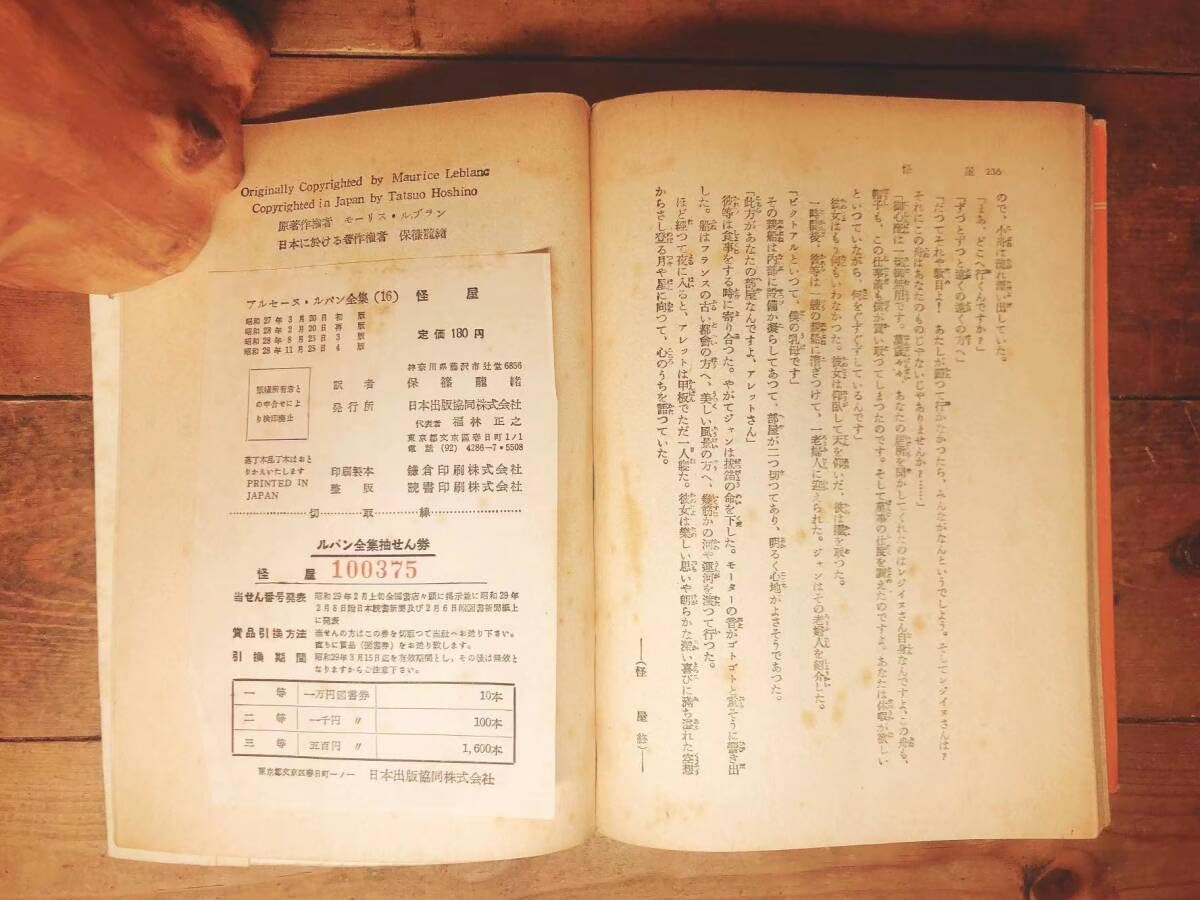 怪　屋 236
ので、小舟は流れ漂い出していた。
「まあ、どこへ行くんですか？」
「ずっとずっと遠くの遠くの方へ」
「だつてそれや駄目よ！　あたし歸って行かなかったら、みんながなんというでしょう。そしてレジイヌさんは？
それにこの舟はあなたのものじゃないじゃありませんか？……」
「御心配は一切御無用です。
あなたの居所を聞かしてくれたのはレジイヌさん自身なんですよ、この舟も、
帽子も、この仕事着も僕が買い取つてしまつたのです。そして萬事の仕度を調えたのですよ。あなたは休暇が欲しい
といつていながら、何をぐずぐずしているんです」
彼女はもう何もいわなかつた。彼女は仰臥して天を仰いだ、彼は櫂を取つた。
一時間後、彼等は一艘の
船に漕ぎつけて、一老婦人に迎えられた。ジャンはその老婦人を紹介した。
「ビクトアルといつて、僕の乳母です」
その
船は内部に設備が凝らしてあつて、部屋が二つ切つてあり、明るく心地がよさそうであつた。
「此方があなたの部屋なんですよ、アレットさん」
彼等は食事をする時に寄り合つた。やがてジャンは拔錨の命を下した。モーターの音がゴトゴトと
そうに響き出
した。船はフランスの古い都會の方へ、美しい風景の方へ、幾筋かの河や運河を渡つて行つた。
ほど經つて夜に入ると、アレットは甲板でただ一人寢た。彼女は樂しい思いや朗らかな深い喜びに滿ち溢れた空想
からさし登る月や星に向つて、心のうちを語つていた。
――（怪　屋　終）――
Originally Copyrighted by Maurice Leblanc
Copyrighted in Japan by Tatsuo Hoshino
原著作権者　モーリス・ルブラン
日本に於ける著作権者　保篠龍緒
アルセーヌ・ルパン全集（16）　怪　屋
昭和27年3月20日 初　版
昭和28年2月20日 再　版
昭和28年8月25日 3　版
昭和28年11月25日 4　版
定価 180円
版権所有者と
の申合せによ
り検印廃止
神奈川県藤沢市辻堂6856
訳　者　保篠龍緒
発行所　日本出版協同株式会社
代表者　福林正之
東京都文京区春日町1ノ1
電話 (92) 4286－7・5508
落丁本乱丁本はおと
りかえいたします
PRINTED IN
JAPAN
印刷製本　鎌倉印刷株式会社
整　版　読書印刷株式会社
切　取　線
ルパン全集抽せん券
怪　屋　100375
当せん番号発表　昭和29年2月上旬全国書店々頭に掲示並に昭和29年
2月8日附日本読書新聞及び2月6日附図書新聞紙上
に発表
賞品引換方法　当せんの方はこの券を切取つて当社へお送り下さい。
直ちに賞品（図書券）をお送り致します。
引換期間　昭和29年3月15日迄を有効期間とし、その後は無効と
なりますからご注意下さい。
一　等　一万円図書券　10本
二　等　一千円　〃　100本
三　等　五百円　〃　1,600本
東京都文京区春日町一ノ一　日本出版協同株式会社